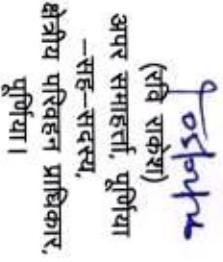 (रवि राकेश)
अपर समाहर्ता, पूर्णिया
–सह–सदस्य,
क्षेत्रीय परिवहन प्राधिकार,
पूर्णिया।